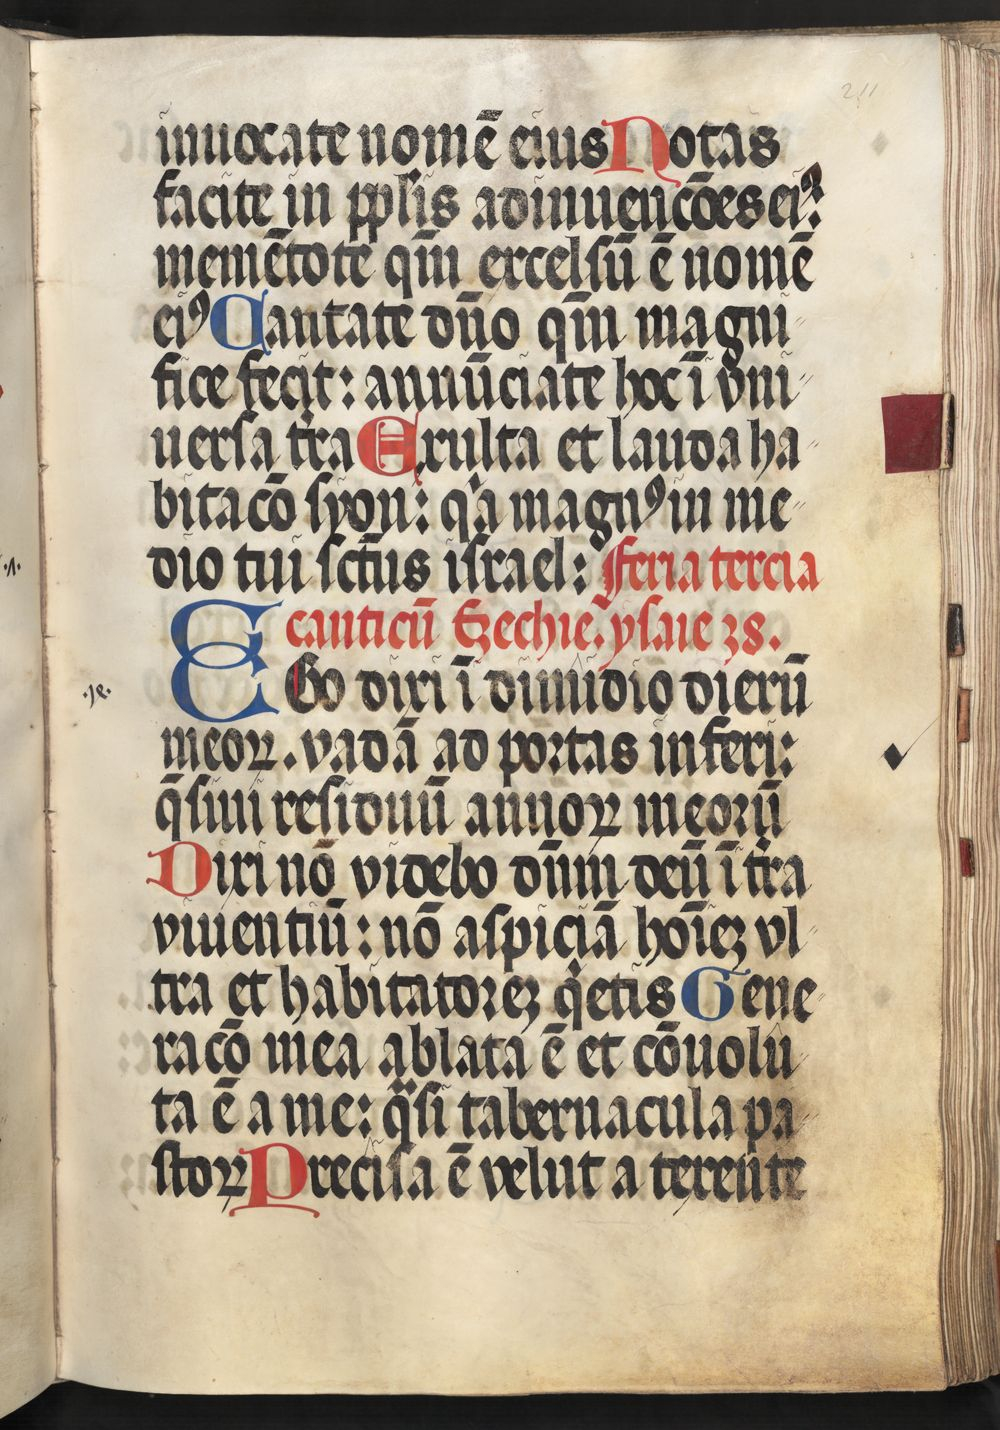 211
inuocate nomē eius Notas
facite in pplis adinuencōes eiꝰ:
memētote qm̄ excelsū ē nomē
eiꝰ Cantate dn̄o qm̄ magni
fice fecit: annūciate hoc ī vni
uersa tr̄a Exulta et lauda ha
bitacō syon: qa magnꝰ in me
dio tui sctūs israel: Feria tercia
canticū Ezechie. ysaie 38.
EGo dixi ī dimidio dierū
meoꝝ. vadā ad portas inferi:
q̄siui residuū annoꝝ meorū
Dixi nō videbo dn̄m deū ī tr̄a
viuentiū: nō aspiciā hoīeꝫ vl
tra et habitatoreꝫ qetis Gene
racō mea ablata ē et cōuolu
ta ē a me: qsi tabernacula pa
stoꝝ Precisa ē velut a texēte